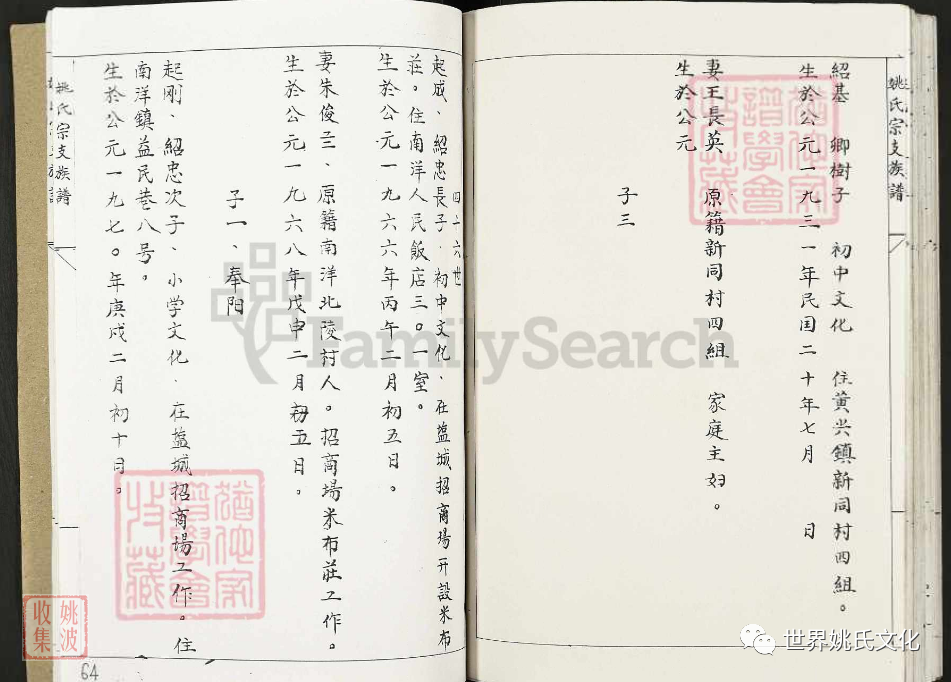 姚氏宗支族譜
紹基 卿樹子 初中文化 住黄兴鎮新同村四組。
生於公元一九三一年民国二十年七月 日
妻王長英 原籍新同村四組 家庭主妇。
生於公元
子三
四十六世
起成、紹忠長子、初中文化、在盐城招商場开設米布
莊。住南洋人民飯店三〇一室。
生於公元一九六六年丙午二月初五日。
妻朱俊兰、原籍南洋北陵村人。招商場米布莊工作。
生於公元一九六八年戊申二月初五日。
子一、奉阳
起刚、紹忠次子、小学文化．在盐城招商場工作。住
南洋鎮益民巷八号。
生於公元一九七〇年庚戌二月初十日。
姚氏宗支族譜
64
FamilySearch
姚波
收集
世界姚氏文化